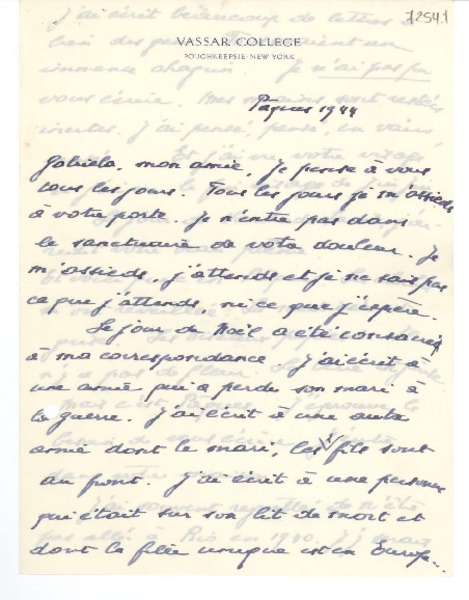 72541
VASSAR COLLEGE
POUGHKEEPSIE · NEW YORK
Pâques 1944
Gabriela, mon amie, Je pense à vous
tous les jours. Tous les jours je m'assieds
à votre porte. Je n'entre pas dans
le sanctuaire de votre douleur. Je
m'assieds, j'attends et je ne sais pas
ce que j'attends, ni ce que j'espère.
Le jour de Noël a été consacré
à ma correspondance J'ai écrit à
une amie qui a perdu son mari à
la guerre. J'ai écrit à une autre
amie dont le mari, les fils sont
au front. J'ai écrit à une personne
qui était sur son lit de mort et
dont la fille unique est en Europe...